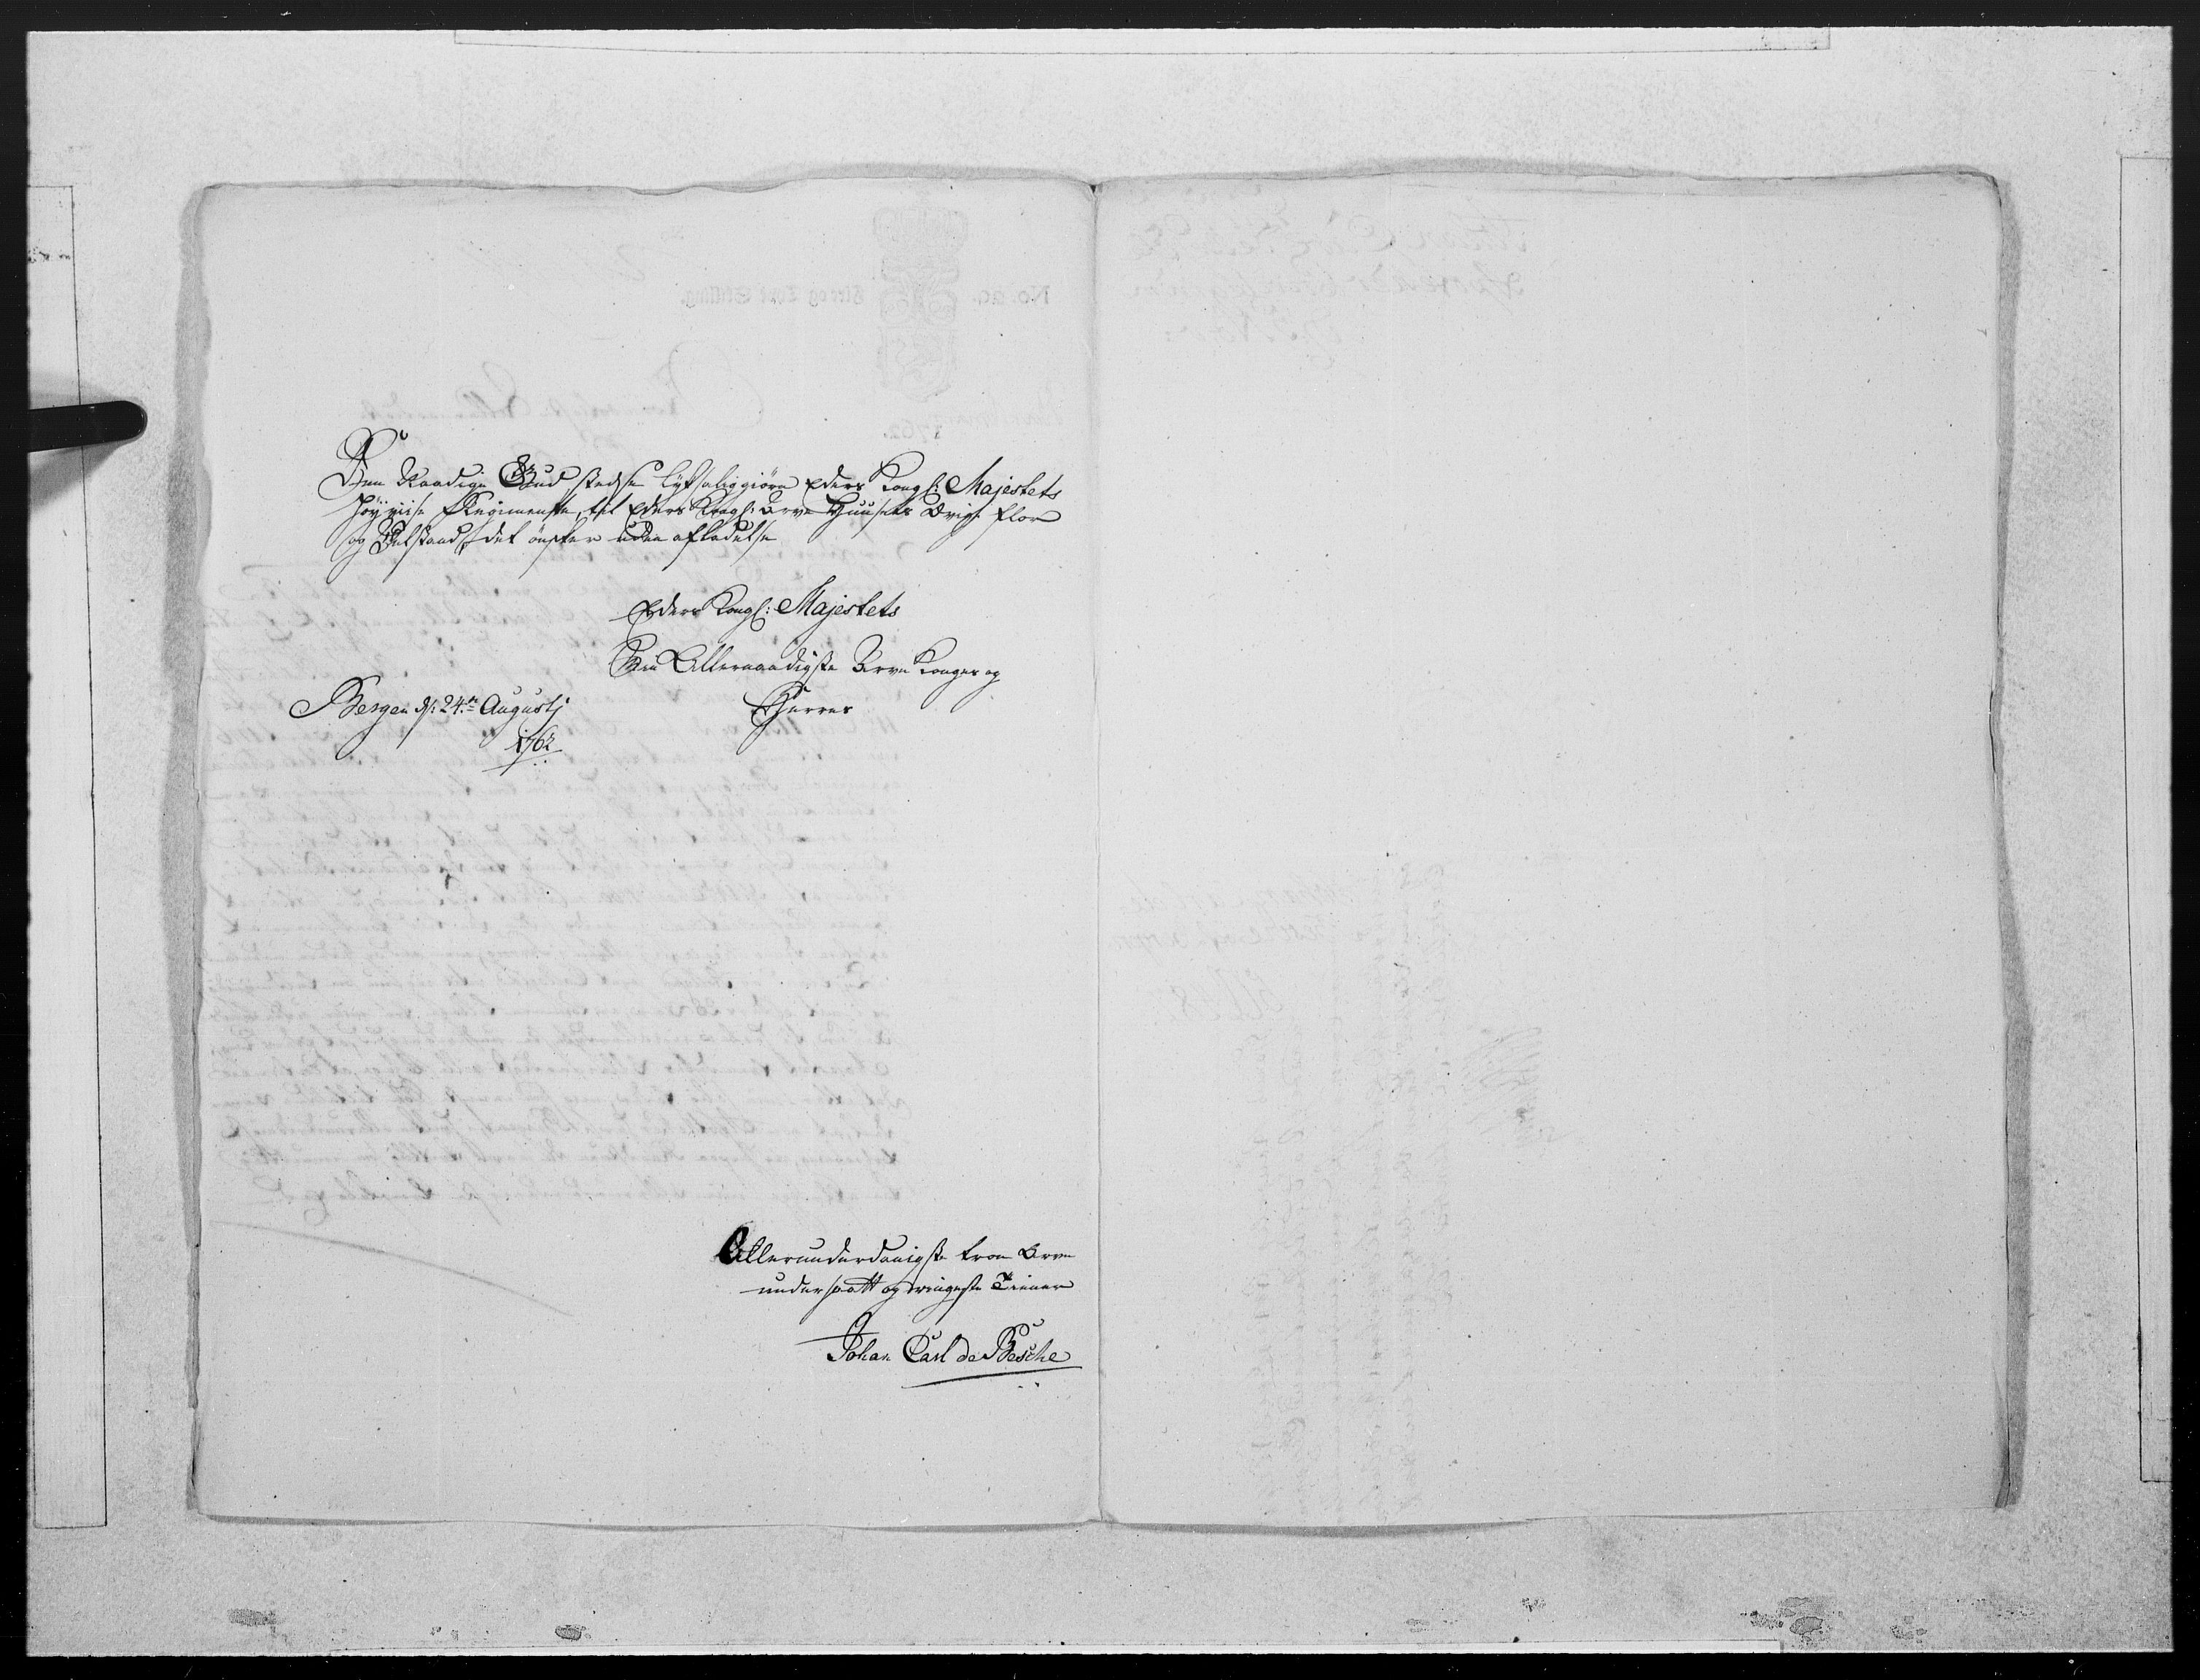 Den Naadige Gud stedse lyksaliggiøre Eders Kongl: Majestets
høyviise Regimente, til Eders Kongl: Arve Huuses Ævige flor
og Velstand, det ønsker uden afladelse
Eders Kongl: Majestets
Min Allernaadigste Arve Konges og
Herres
Bergen d: 24de Augustj
1762
Allerunderdanigste troe Arve
undersaatt og ringeste Tienner
Johan Carl de Besche